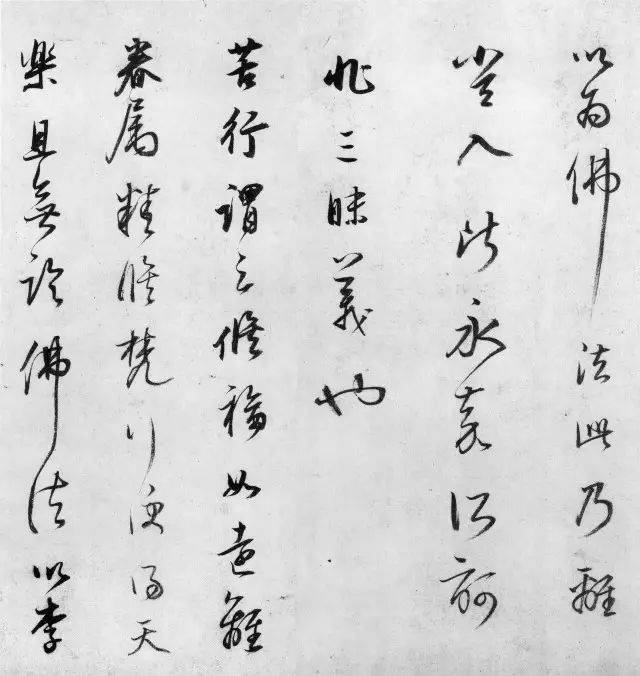 以為佛法此乃離
入此永嘉所訶
非三昧義也
苦行謂之修福如遠離
眷属精修梵行便得天
樂且無論佛法以李